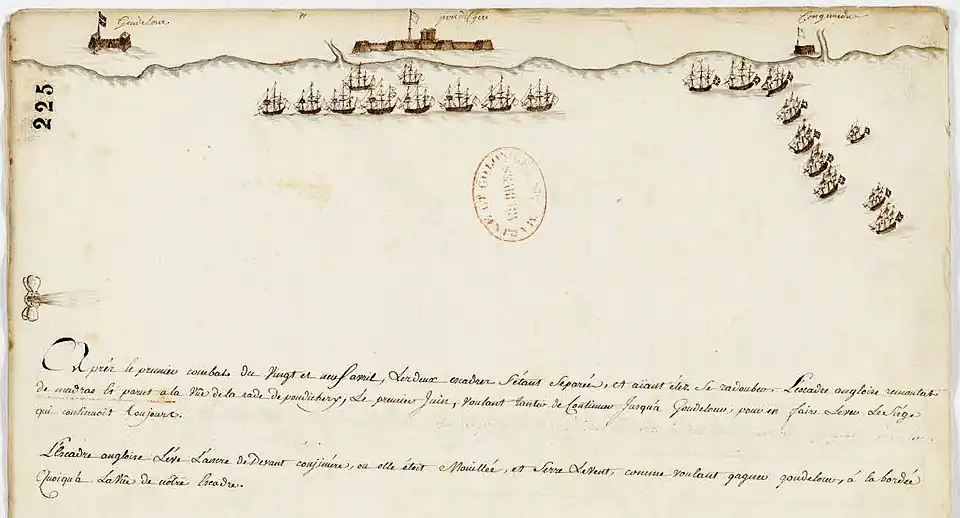 Goudelour
pondichery
Conjimedu
225
MARINE ET COLONIES
ARCHIVES
Après le premier combat du Vingt et neuf avril, Les deux escadres s'étant Separée, et aiant étez Se radouber. L'escadre angloise remontat
de madras Et parut a la Vüe de la rade de pondichery, Le premier Juin, voulant tanter de Continuer Jusqu'à Goudelour, pour en faire Lever Le Siége
qui continuoit toujours.
L'Escadre angloise Léve L'ancre de Devant conjimére, ou elle étoit Mouillée, et Serre Le Vent, comme voulant gagner goudelour, à la bordée
Quoiqu'à La Vüe de nôtre Escadre.